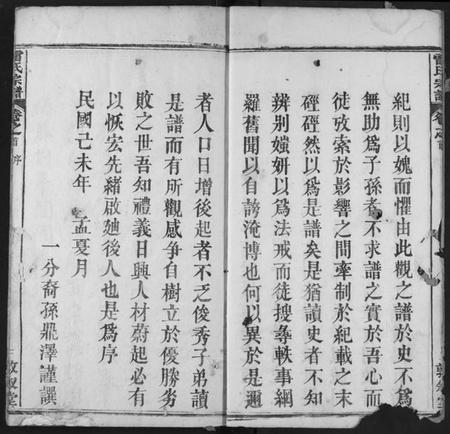 紀則以媿而懼由此觀之譜於史不為
無助為子孫者不求譜之實於吾心而
徒攷索於影響之間牽制於紀載之末
硜硜然以為是譜矣是猶讀史者不知
辨别媸妍以為法戒而徒搜尋軼事網
羅舊聞以自誇淹博也何以異於是邇
雷氏宗譜
卷之首 序
者人口日增後起者不乏俊秀子弟讀
是譜而有所觀感爭自樹立於優勝劣
敗之世吾知禮義日興人材蔚起必有
以恢宏先緒啟廸後人也是為序
民國己未年 孟夏月
一分裔孫鼎澤謹譔
敦叙堂